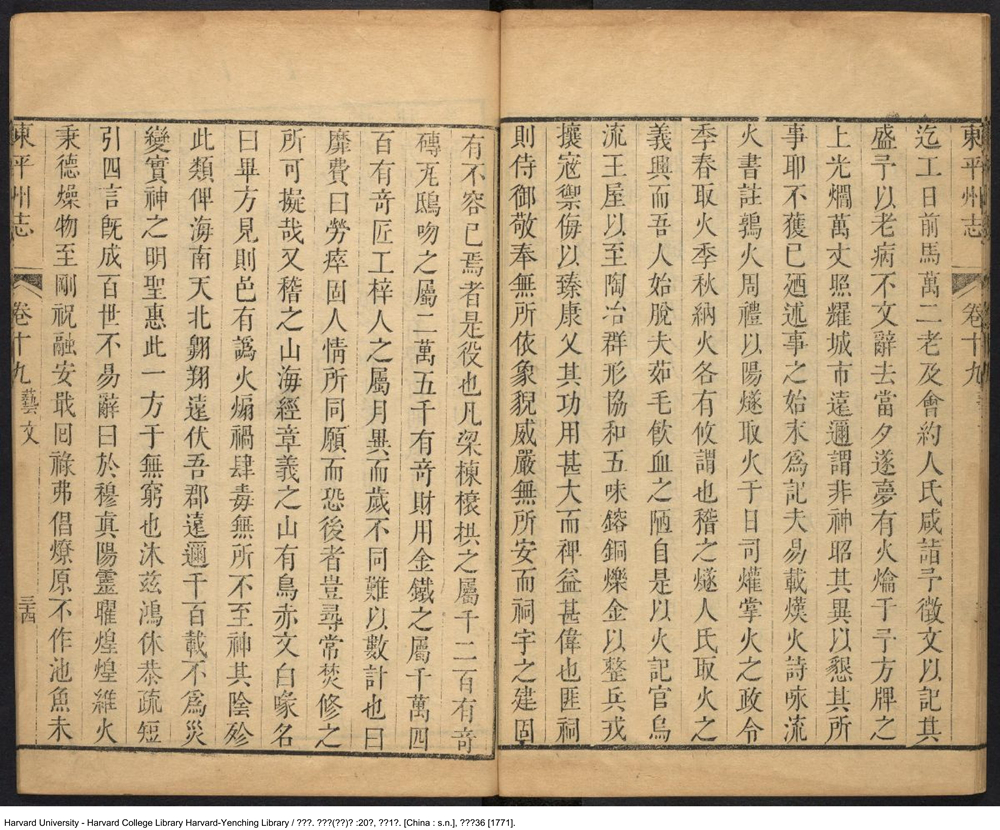 東平州志 卷十九
迄工日前馬萬二老及會約人氏咸詣予徵文以記其
盛予以老病不文辭去當夕遂夢有火爚于予方牌之
上光爓萬丈照耀城市遠邇謂非神昭其異以懇其所
事耶不獲已廼述事之始末爲記夫易載熯火詩咏流
火書註鶉火周禮以陽燧取火于日司爟掌火之政令
季春取火季秋納火各有攸謂也稽之燧人氏取火之
義興而吾人始脫夫茹毛飲血之陋自是以火記官烏
流王屋以至陶冶群形協和五味鎔銅爍金以整兵戎
攘寇禦侮以臻康乂其功用甚大而裨益甚偉也匪祠
則侍御敬奉無所依象貌威嚴無所安而祠宇之建固
有不容已焉者是役也凡梁棟榱栱之屬千二百有奇
磚瓦鴟吻之屬二萬五千有奇財用金鐵之屬千萬四
百有奇匠工梓人之屬月異而歲不同難以數計也曰
靡費曰勞瘁固人情所同願而恐後者豈尋常焚修之
所可擬哉又稽之山海經章義之山有鳥赤文白喙名
曰畢方見則邑有譌火煽禍肆毒無所不至神其陰殄
此類俾海南天北翺翔遠伏吾郡遠邇千百載不爲災
變實神之明聖惠此一方于無窮也沐兹鴻休恭疏短
引四言旣成百世不易辭曰於穆真陽靈曜煌煌維火
秉德燥物至剛祝融安戢囘祿弗倡燎原不作池魚未
東平州志 卷十九 藝文 三十四
Harvard University - Harvard College Library Harvard-Yenching Library / ???. ???(??)? :20?, ??1?. [China : s.n.], ???36 [1771].